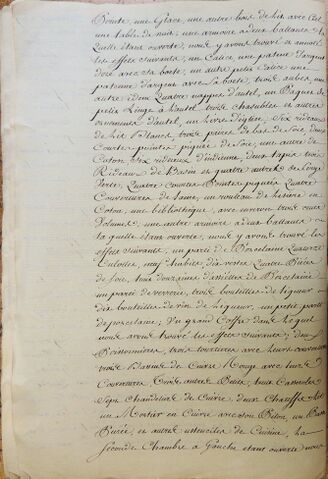 Pointe, une Glace, une autre bois de lit avec
une table de nuit, une armoire a deux Battants
quelle étant ouverte, nous y avons trouvé
les effets suivants, un Calice, une patene d'argent
doré avec sa boete, un autre petit Calice une
patenne d'argent avec sa boete, trois aubes, une
autre idem quatre nappes d'autel, un
petit Linge a hautel, trois chasubles et autres
ornements d'autel, un livre d'église, Six rideaux
de lit Blanc, trois paires de bas de Soie, deux
Courtes pointes piquées de Soie, une autre de
Coton, Six rideaux d'indienne, deux tapis trois
Rideaux de Basin et quatre autres de Serge
Verte, Quatre Courtes Pointes piquées quatre
Couvertures de laine, un rouleau de
Coton, une bibliothèque, avec environ trois cents
Volumes, une autre armoire a deux battants
laquelle étant ouverte, nous y avons trouvé les
effets suivants, un parti de Porcelaine
Culottes, neuf habits dix vestes Quatre
de Soie, trois douzaines d'assiettes de Porcelaine
un parti de verrerie, trois bouteilles de liqueur
dix bouteilles de vin de liqueur, un petit parti
de porcelaine; Un grand Coffre dans lequel
nous avons trouvé les effets suivants; deux
Poissonnières, trois tourtières avec leurs couvercles
trois Bassins de Cuivre Rouge avec leurs
Couvertures, trois autres Petits, huit Casseroles
Sept Chandeliers de Cuivre, deux
un Mortier en Cuivre avec son Pilon, un
et autres ustenciles de Cuisine, La
Seconde Chambre a Gauche étant ouverte nous